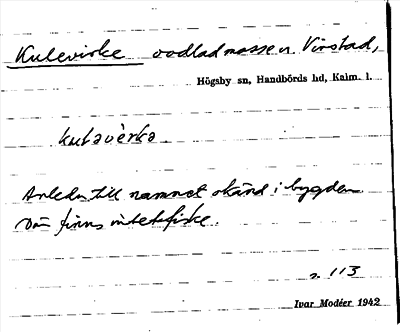 Kulevirke oodlad mosse n. Virstad,
Högsby sn, Handbörds hd, Kalm. l.
kuləvèrkə
Anledn till namnet okänd i bygden
Där finns intet fiske.
s. 113
Ivar Modéer 1942